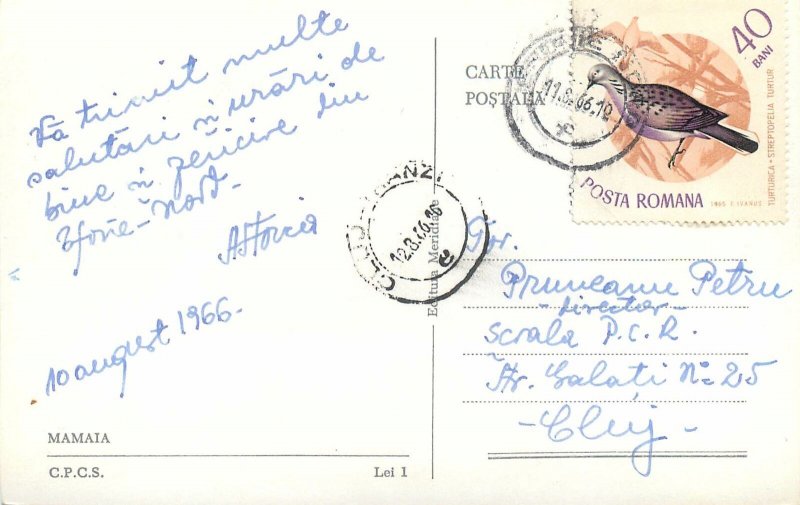 Vă trimit multe
salutări și urări de
bine și fericire din
Eforie-Nord.
10 august 1966.
MAMAIA
C.P.C.S. Lei 1
CARTE
POSTALĂ
Editura Meridiane
11.8.66.19
12.8.66
40
BANI
TURTURICA - STREPTOPELIA TURTUR
POSTA ROMANA
1965 I. IVANUS
Tov.
Pruneanu Petru
- Director -
Scoala P.C.R.
Str. Galați No 25
- Cluj -